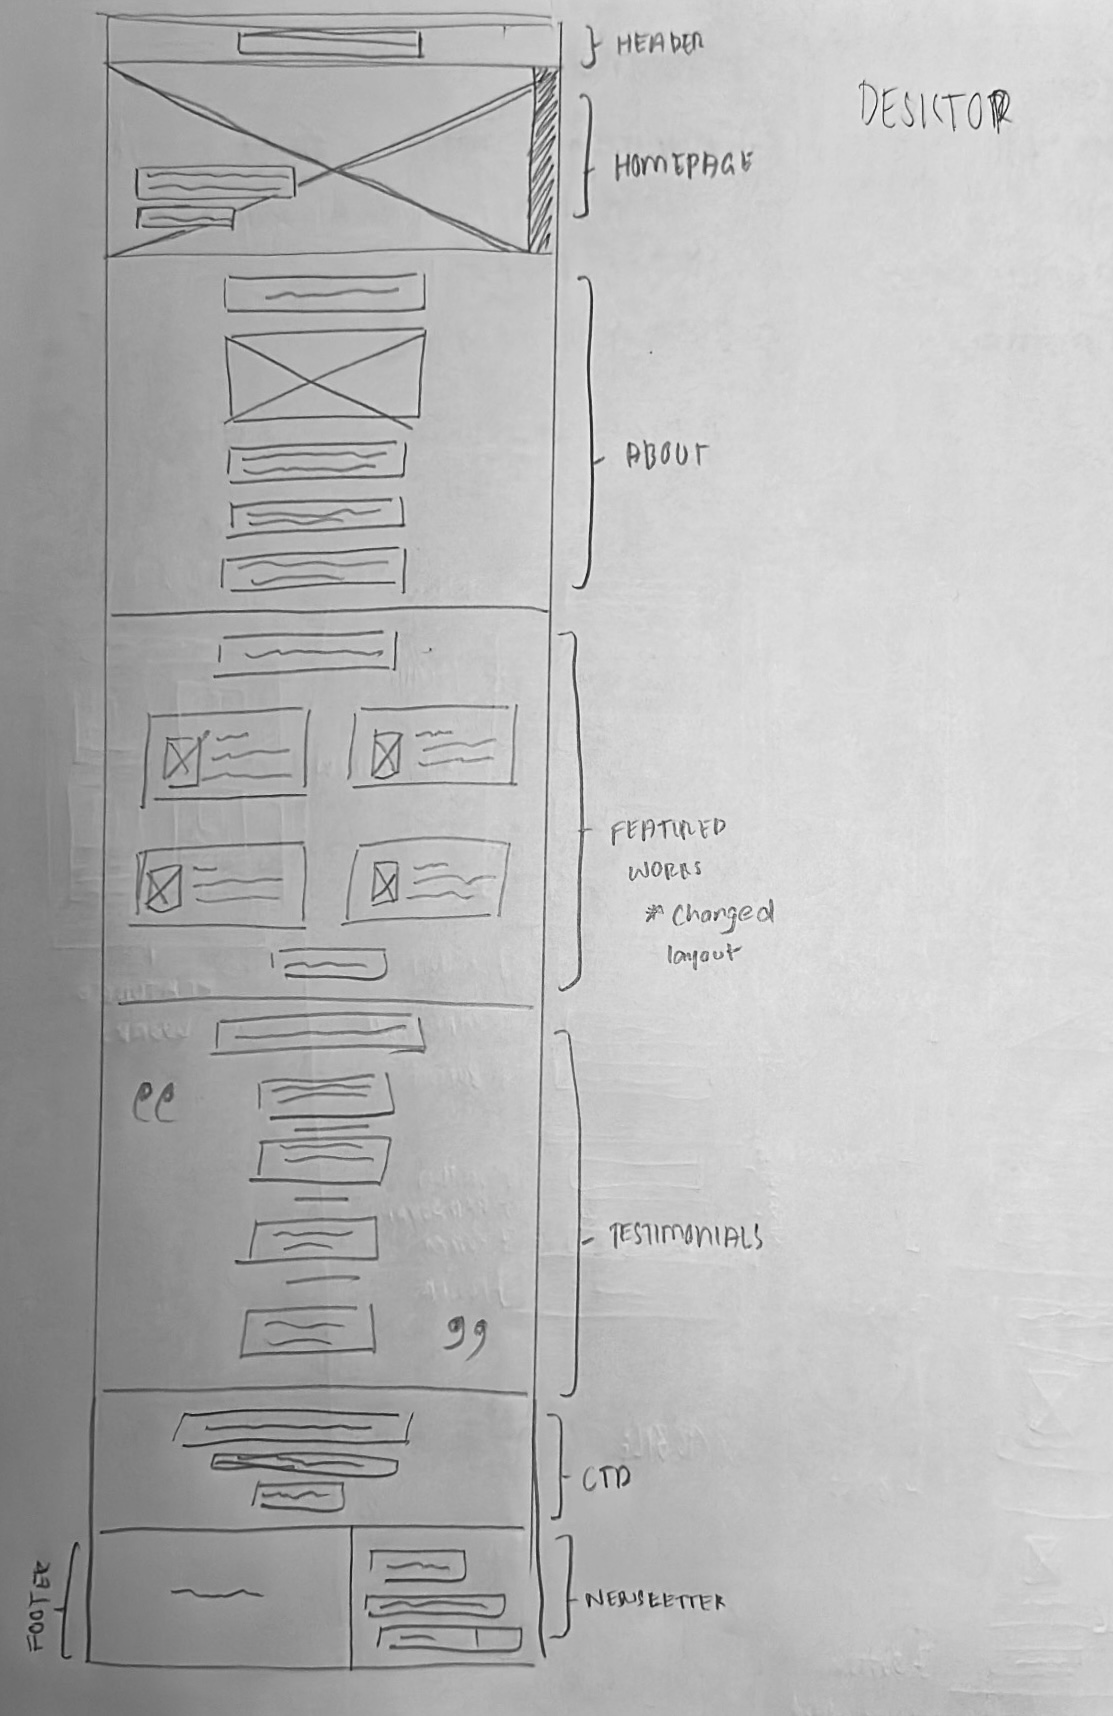 HEADER
DESKTOP
HOMEPAGE
ABOUT
FEATURED
WORKS
* Changed
layout
TESTIMONIALS
CTA
NEWSLETTER
FOOTER